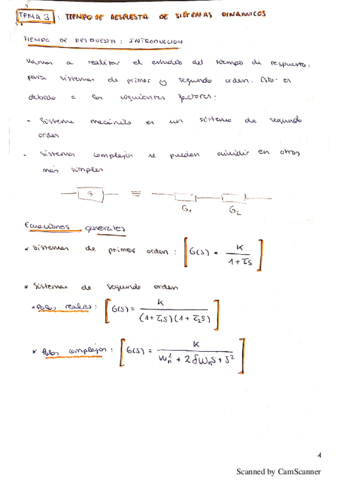 TEMA 3: TIEMPO DE RESPUESTA DE SISTEMAS DINAMICOS
TIEMPO DE RESPUESTA: INTRODUCCION
Vamos a realizar el estudio del tiempo de respuesta,
para sistemas de primer y segundo orden. Esto es
debido a los siguientes factores:
- Sistema mecánico es un sistema de segundo
orden
- Sistemas complejos se pueden dividir en otros
mas simples
G ≡ G₁ G₂
Ecuaciones generales
• Sistemas de primer orden: [G(s) = K / (1+τs)]
• Sistemas de segundo orden
• Polos reales: [G(s) = K / ((1+τ₁s)(1+τ₂s))]
• Polos complejos: [G(s) = K / (Wn² + 2δWns + s²)]
4
Scanned by CamScanner